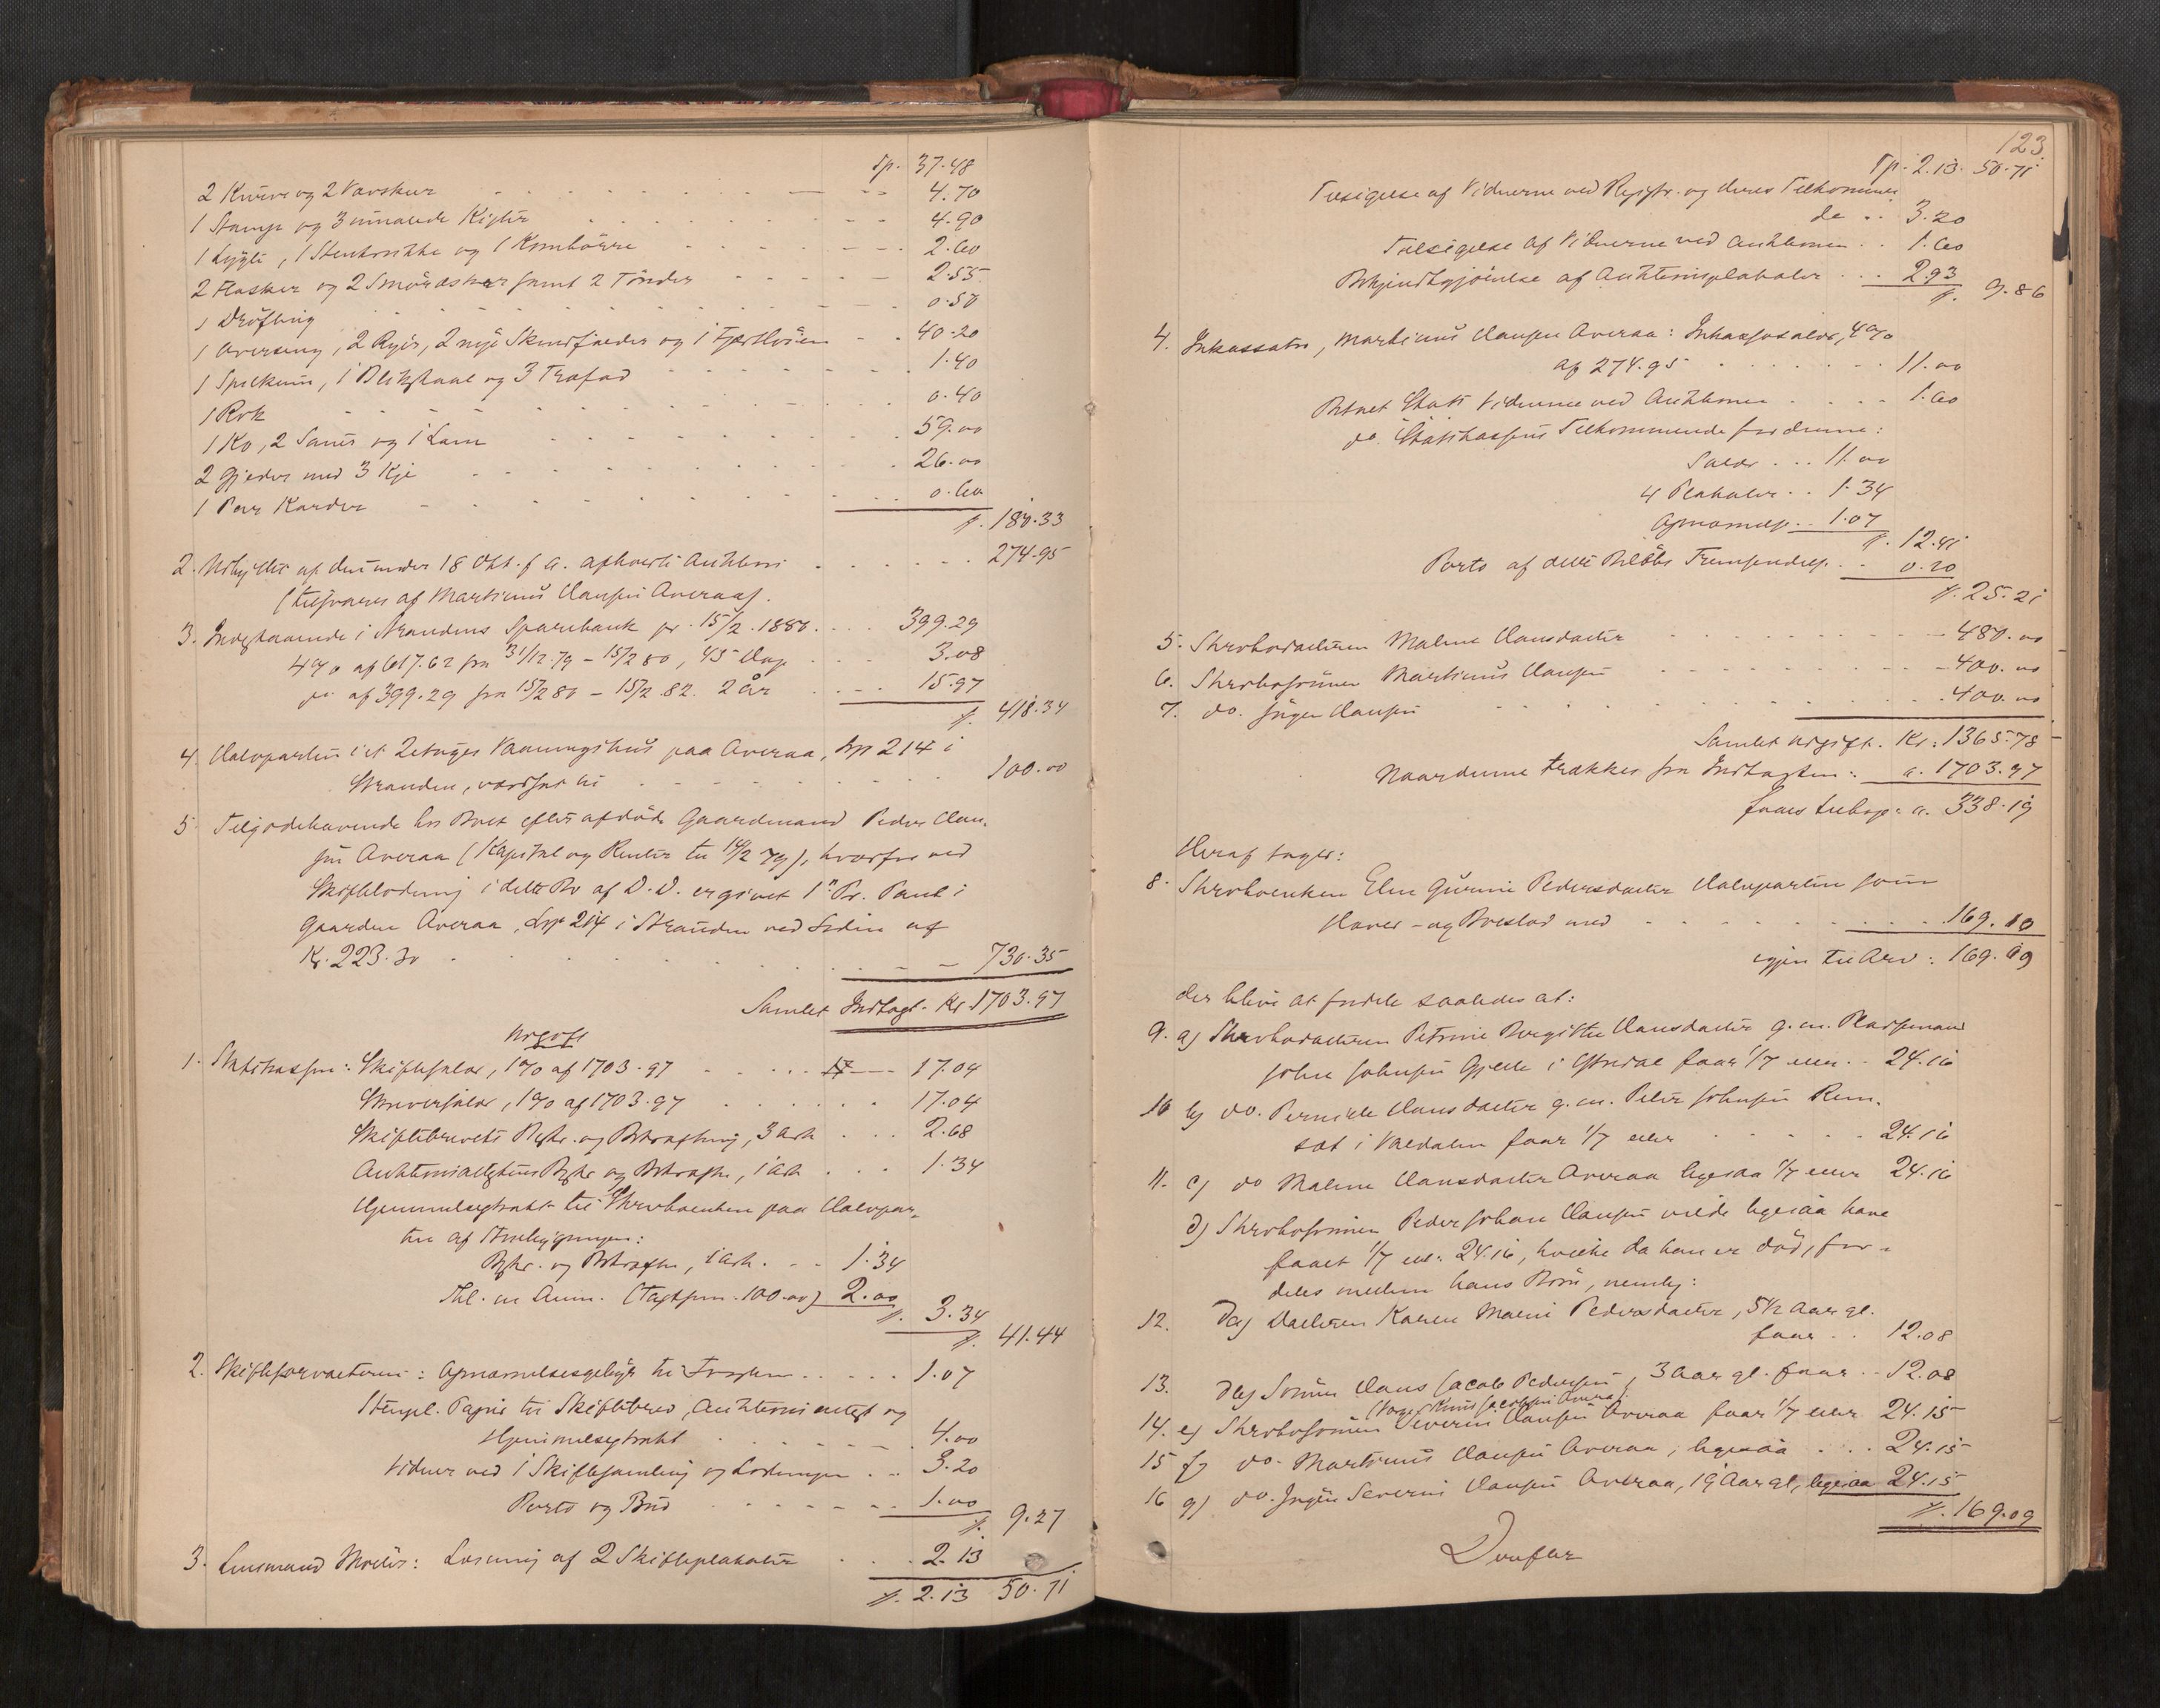 Tp. 37.48
2 Knive og 2 Vovskur 4.70
1 Stamp og 3 umalede Kister 4.90
1 Lygte, 1 Stenkrukke og 1 Kornbørre 2.60
2 Flasker og 2 Smøræsker samt 2 Tønder 2.55
1 Drøfting 0.50
1 Overseng, 2 Ryer, 2 nye Skindfælder og 1 40.20
1 Spilkum, 1 Blikskaal og 3 Træfad 1.40
1 Rok 0.40
1 Ko, 2 Sauer og 1 Lam 59.00
2 Gjeder med 3 Kje 26.00
1 Par Karder 0.60
/. 180.33
2. Udbyttet af den under 18 Okt. f. a. afholdte Auktion 274.95
(tilsvares af Martinus Hansen Overaa).
3. Indestaaende i Strandens Sparebank pr. 15/2.1880. 399.29
4% af 617.62 fra 31/12.79 - 15/2 80, 45 Dage 3.08
do af 399.29 fra 15/2 80 - 15/2.82. 2 år 15.97
/. 418.34
4. Halvparten i et 2etages Vaaningshus paa Overaa, Lnr 214 i
Stranden, værdsat til 100.00
5. Tilgodehavende hos Boet efter afdøde Gaardmand Peder Han-
sen Overaa (Kapital og Renter til 14/2 79), hvorfor ved
Skifteslutning i dette Bo af D.D. er givet 1ste Pr. Pant i
Gaarden Overaa, Lnr 214 i Stranden ved Siden af
Kr. 223.30 730.35
Samlet Indtægt - Kr 1703.97
Udgift
1. Statskassen: Skiftesalær, 1% af 1703.97 17.04
Skriversalær, 1% af 1703.97 17.04
Skiftebrevets Beskr. og Bekræftning, 3 Ark 2.68
Auktionsattestens Beskr og Bekræftn, 1 Ark 1.34
Hjemmelsextrakt til Skrboenken paa Halvpar-
ten af Stuebygningen:
Beskr. og Bekræftn, 1 Ark. 1.34
Thl. og Ann. (Taxtsum 100.00) 2.00
/. 3.34
/. 41.44
2. Skifteforvalteren: Opnævnelsesgebyr til Fogden 1.07
Stempl. Papir til Skiftebrev, Auktionsattest og
Hjemmelsextrakt 4.00
Vidner ved 1 Skiftesamling og Lodningen 3.20
Porto og Bud 1.00
/. 9.27
3. Lensmand Møller: Læsning af 2 Skifteplakater 2.13
/. 2.13 50.71
123
Tp. 2.13. 50.71
Tilsigelse af Vidnerne ved Registr. og deres Tilkommen-
de 3.20
Tilsigelse af Vidnerne ved Auktionen 1.60
Bekjendtgjørelse af Auktionsplakater 2.93
/. 9.86
4. Inkassator, Martinus Hansen Overaa: Inkassosalær, 4%
af 274.95 11.00
Betalt Vidnerne ved Auktionen 1.60
do. Statskassens Tilkommende for denne:
Salær 11.00
4 Plakater 1.34
Opnævnelse 1.07
/. 12.41
Porto af dette Beløbs Fremsendelse 0.20
/. 25.21
5. Skrbodatteren Maline Hansdatter 480.00
6. Skrbosønnen Martinus Hansen 400.00
7. do. Ingen Hansen 400.00
Samlet Udgift. Kr: 1365.78
Naar denne trækkes fra Indtægten: a. 1703.97
faaes tilbage: a. 338.19
Heraf tager:
8. Skrboenken Elen Gurine Pedersdatter Halvparten som
Hoved- og Boeslod med 169.10
igjen til Arv: 169.09
der bliver at fordele saaledes at:
9. a) Skrbodatteren Petrine Birgitte Hansdatter g. m. Pladsmand
John Johnsen Gjelle i faar 1/7 eller 24.16
10 b) do. Pernille Hansdatter g. m. Peter Johnsen Rem-
sæt i Valdalen faar 1/7 eller 24.16
11. c) do Maline Hansdatter Overaa ligesaa 1/7 eller 24.16
d) Skrbosønnen Peder Johan Hansen vilde ligesaa have
faaet 1/7 ell. 24.16, hvilke da han er død, for-
deles mellem hans Børn, nemlig:
12. Da) Datteren Karen Marie Pedersdatter, 5½ Aar gl.
faar 12.08
13. Db) Sønnen Hans Jacob Pedersen, 3 Aar gl. faar 12.08
(Værge Knut Jacobsen Overaa)
14. e) Skrbosønnen Severin Hansen Overaa faar 1/7 eller 24.15
15 f) do. Martinus Hansen Overaa, ligesaa 24.15
16 g) do. Ingen Severin Hansen Overaa, 19 Aar gl, ligesaa 24.15
/. 169.09